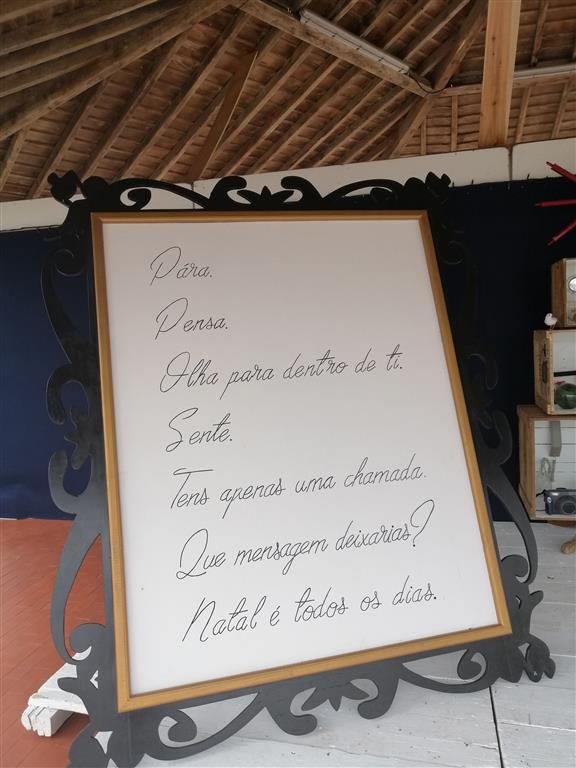 Pára.
Pensa.
Olha para dentro de ti.
Sente.
Tens apenas uma chamada.
Que mensagem deixarias?
Natal é todos os dias.